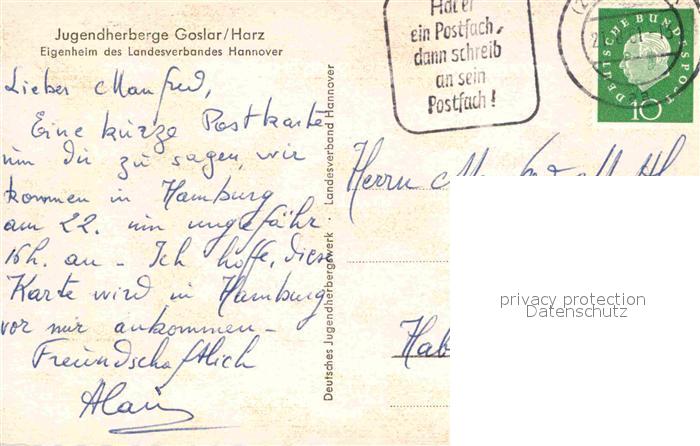 Jugendherberge Goslar/Harz
Eigenheim des Landesverbandes Hannover
Lieber Manfred,
Eine kurze Postkarte
um Dir zu sagen, wir
kommen in Hamburg
am 22. um ungefähr
16h. an – Ich hoffe, diese
Karte wird in Hamburg
vor mir ankommen –
Freundschaftlich
Alain
Deutsches Jugendherbergswerk · Landesverband Hannover
Hat er
ein Postfach,
dann schreib
an sein
Postfach!
DEUTSCHE BUNDESPOST
10
Herrn
privacy protection
Datenschutz